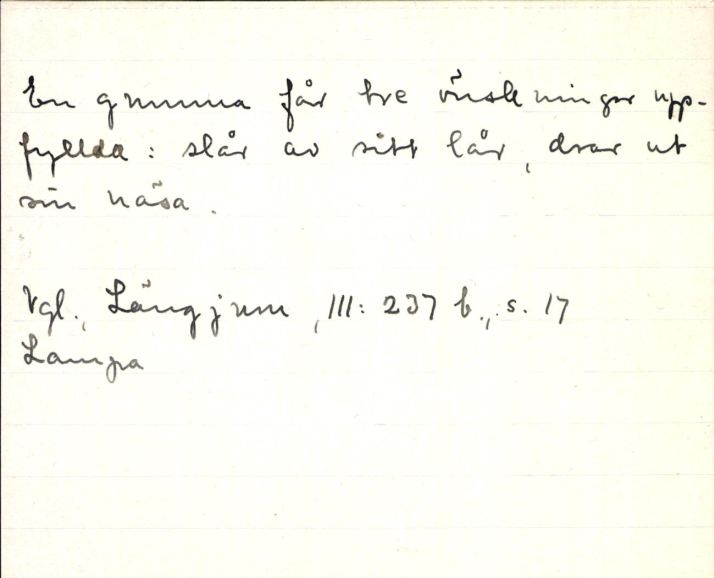 En gumma får tre önskningar upp-
fyllda : slår av sitt lår, drar ut
sin näsa.
Vgl., Långjum, III: 237 b., s. 17
Lampa